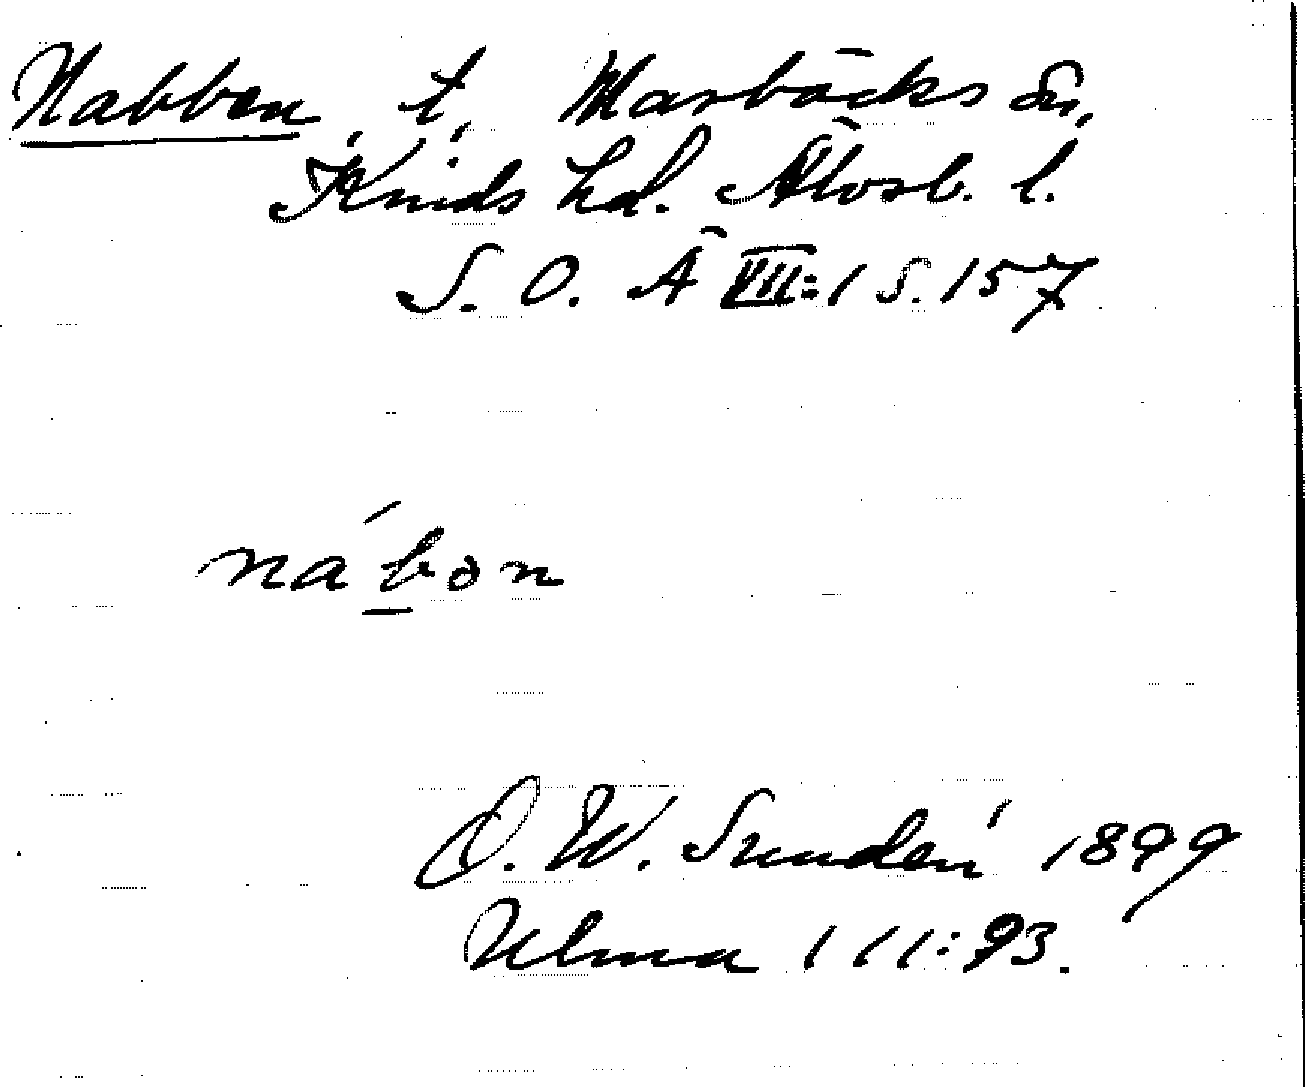 Nabben, t, Marbäcks sn,
Kinds hd. Älvsb. l.
S. O. Ä VII:1 s. 157
nábon
D. W. Sundén 1899
Ulma 111:93.